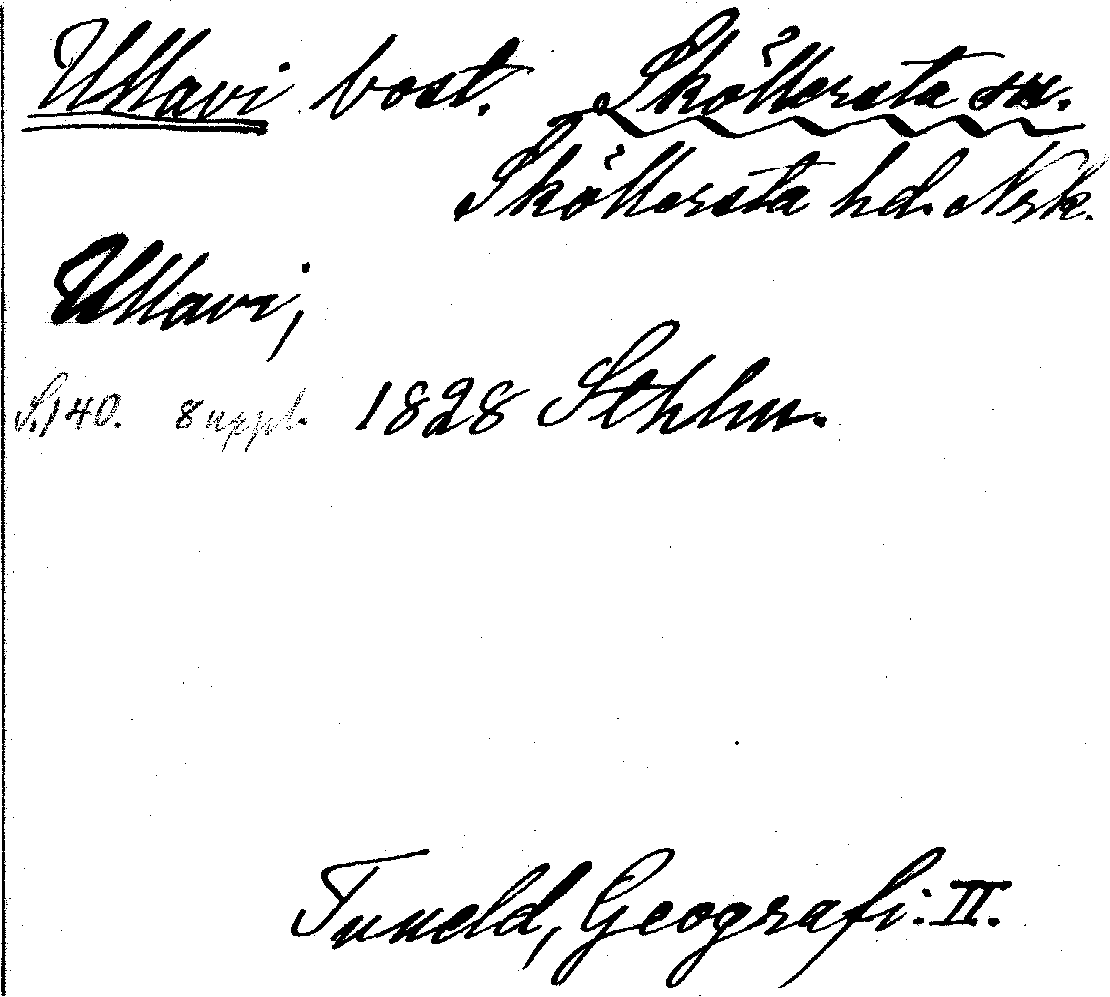 Ullavi bost. Sköllersta sn.
Sköllersta hd. Nrk.
Ullavi,
S. 140. 8 uppl. 1828 Sthlm.
Tuneld, Geografi: II.